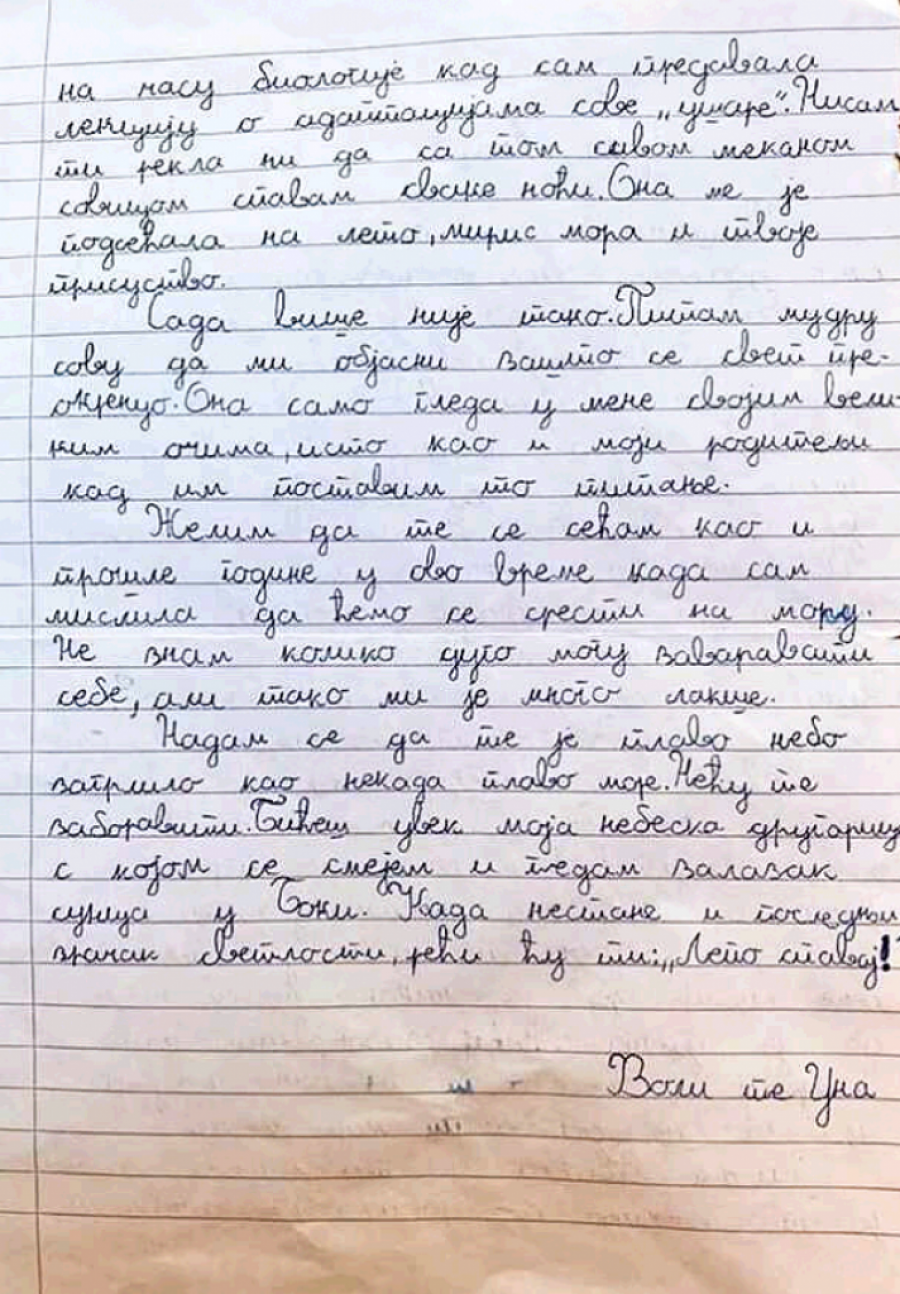 на часу биологије кад сам предавала
лекцију о адаптацијама сове „ушаре“. Нисам
ти рекла ни да са том сивом меканом
совицом спавам сваке ноћи. Она ме је
подсећала на лето, мирис мора и твоје
присуство.
Сада више није тако. Питам мудру
сову да ми објасни зашто се свет пре-
окренуо. Она само гледа у мене својим вели-
ким очима, исто као и моји родитељи
кад им поставим то питање.
Желим да те се сећам као и
прошле године у ово време када сам
мислила да ћемо се срести на мору.
Не знам колико дуго могу заваравати
себе, али тако ми је много лакше.
Надам се да те је плаво небо
загрлило као некада плаво море. Нећу те
заборавити. Бићеш увек моја небеска другарица
с којом се смејем и гледам залазак
сунца у Боки. Када нестане и последњи
зрачак светлости, рећи ћу ти: „Лепо спавај!
Воли те Уна